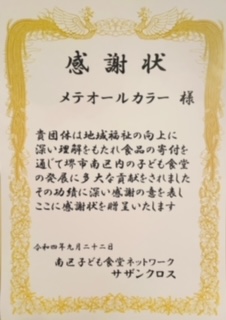 感謝状
メテオールカラー 様
貴団体は地域福祉の向上に
深い理解をもたれ食品の寄付を
通じて堺市南区内の子ども食堂
の発展に多大な貢献をされました
その功績に深い感謝の意を表し
ここに感謝状を贈呈いたします
令和四年九月二十二日
南区子ども食堂ネットワーク
サザンクロス